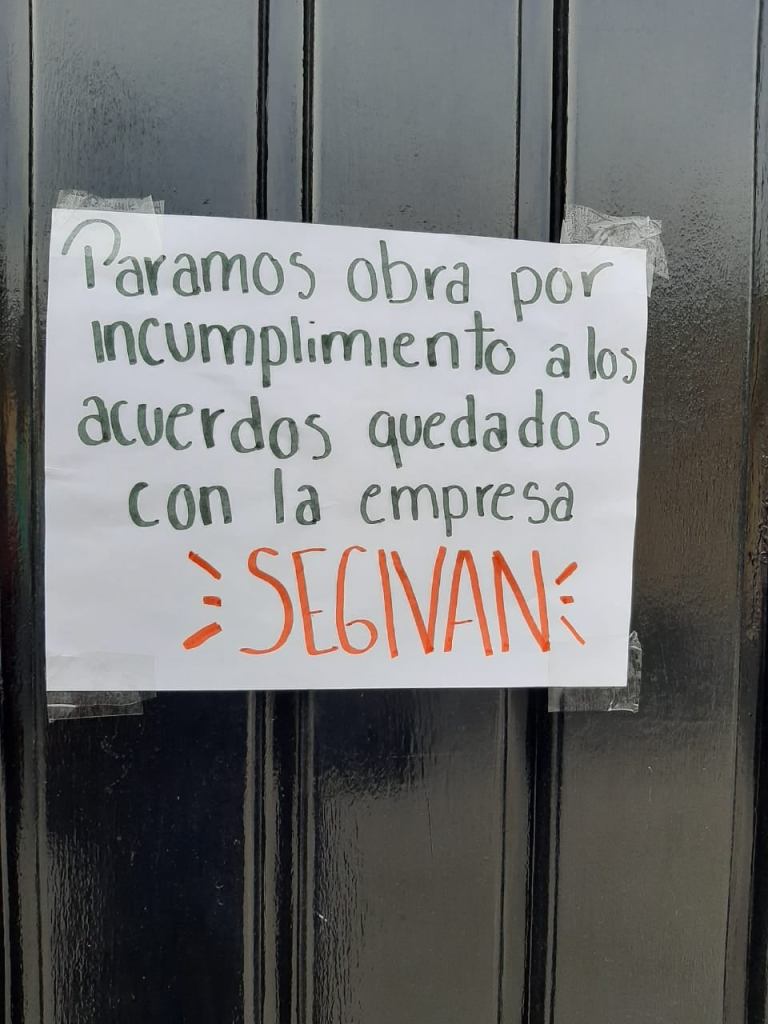 Paramos obra por
incumplimiento a los
acuerdos quedados
con la empresa
SEGIVAN